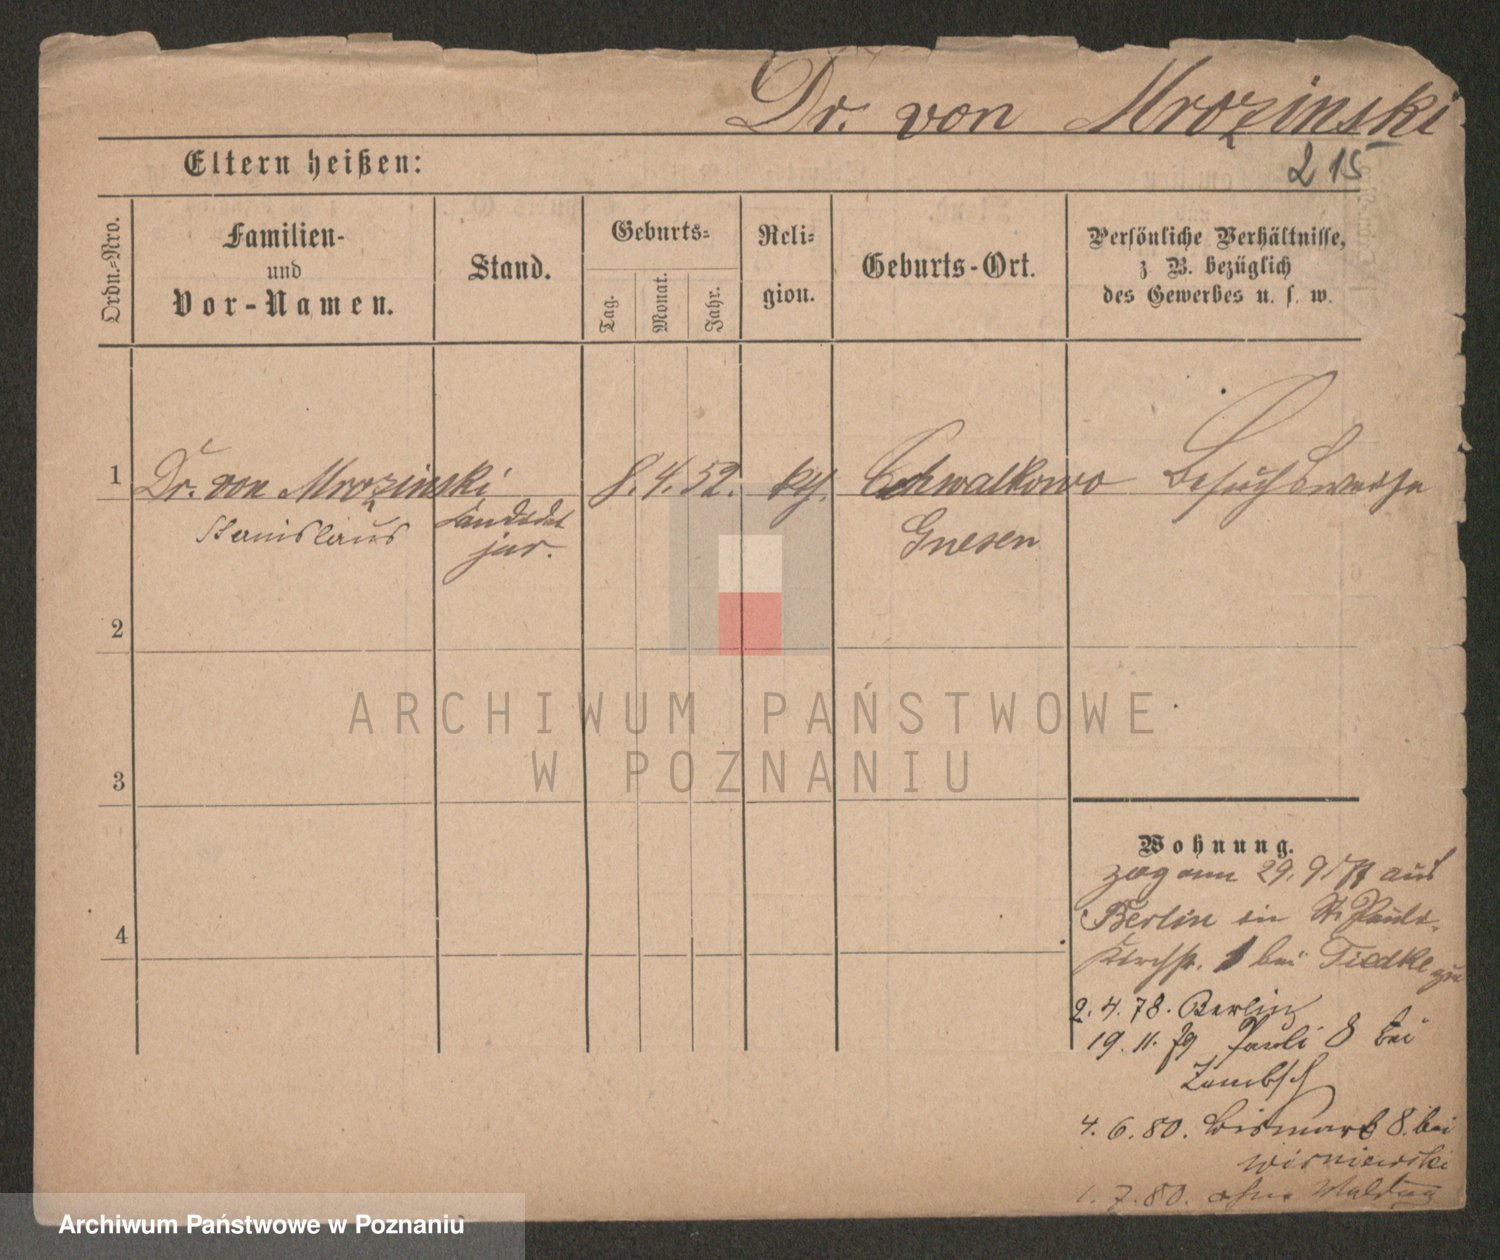 Dr. von Mrozinski
215
Eltern heißen:
Ordn.-Nro.
Familien-
und
Vor-Namen.
Stand.
Geburts-
Tag.
Monat.
Jahr.
Reli-
gion.
Geburts-Ort.
Persönliche Verhältnisse,
z. B. bezüglich
des Gewerbes u. s. w.
1
Dr. von Mrozinski
Stanislaus
Kandidat
jur.
8. 4. 52.
kth.
Schwalkowo
Gnesen
Besuchsweise
2
3
4
Wohnung.
zog am 29. 9. 77 aus
Berlin in St. Pauli-
Kirchstr. 1 bei Tiedke
2. 4. 78. Berlin
19. 11. 79 Pauli 8 bei
4. 6. 80. Bismark 8. bei
Wisniewski
1. 7. 80. ohne Meldung
ARCHIWUM PAŃSTWOWE
W POZNANIU
Archiwum Państwowe w Poznaniu